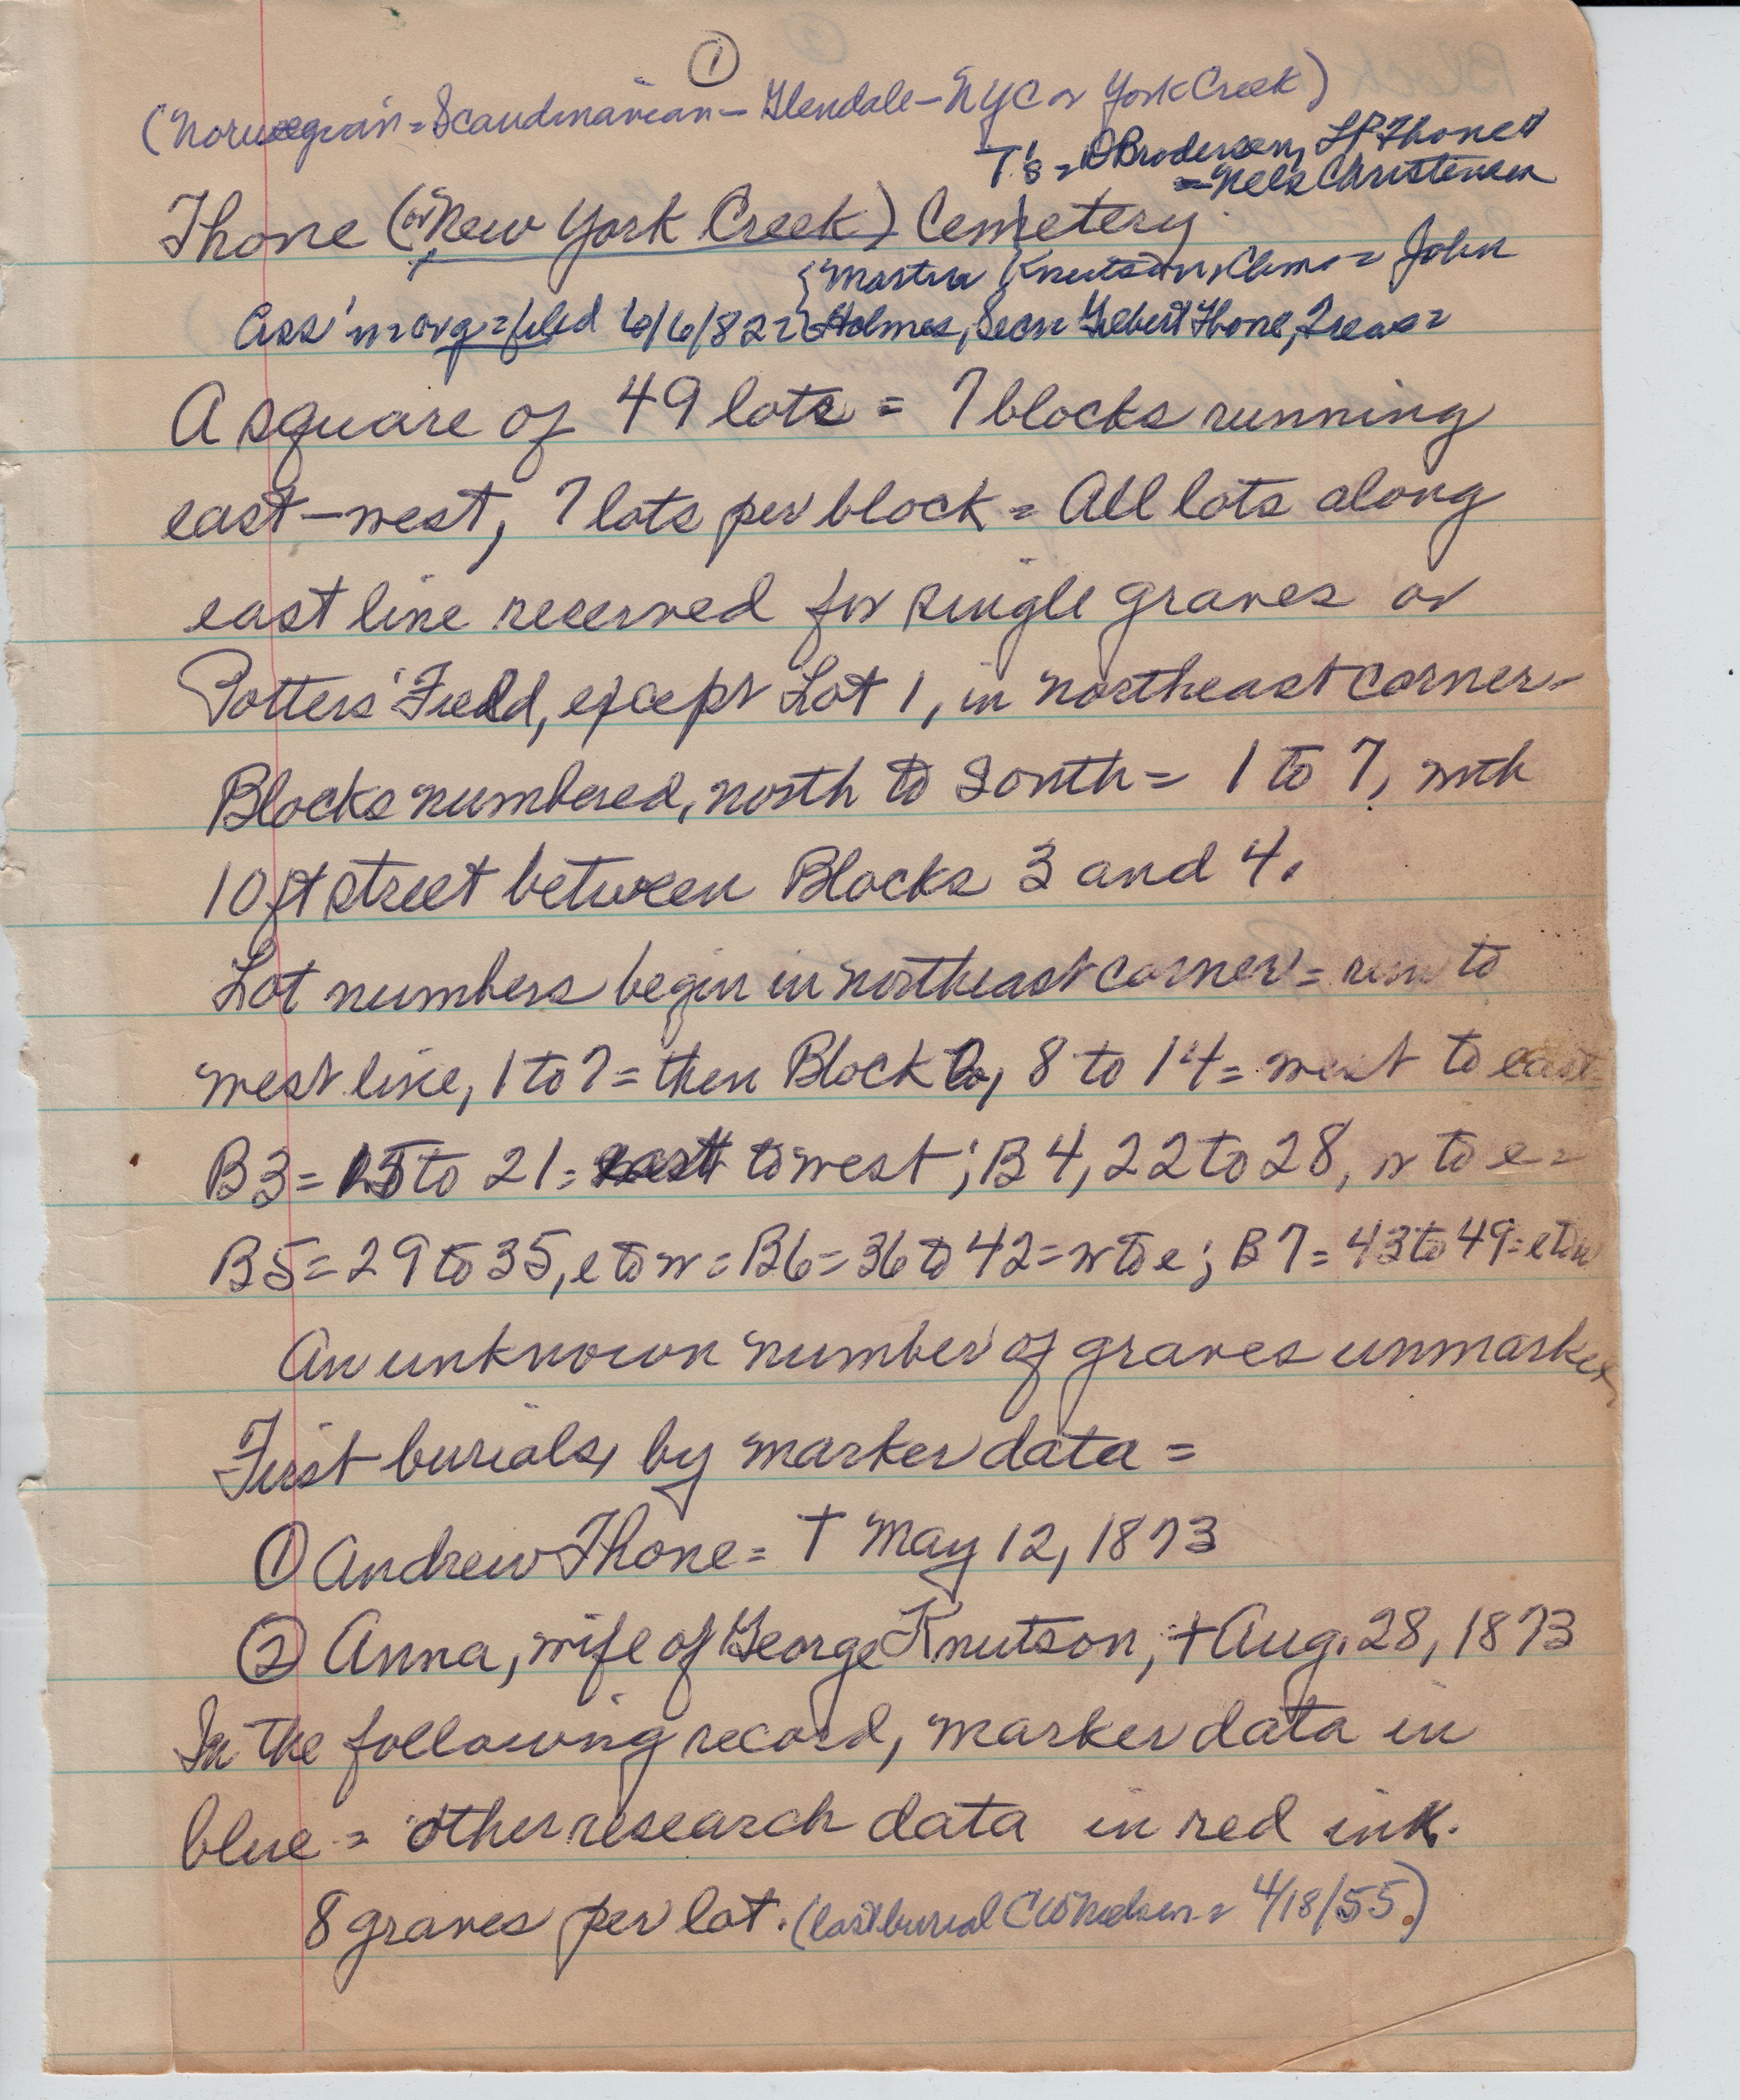 ①
(Norwegian = Scandinavian - Glendale - NYC or York Creek)
T's = O Brodersen, LP Thone
= Nels Christensen
Thone (or New York Creek) Cemetery
{Martin Knutson, Chm = John
Ass'n org = filed 6/6/82 = Holmes, Sec = Gilbert Thone, Treas =
A square of 49 lots = 7 blocks running
east-west, 7 lots per block = All lots along
east line reserved for single graves or
Potters' Field, except Lot 1, in northeast corner -
Blocks numbered, north to South = 1 to 7, with
10 ft street between Blocks 3 and 4.
Lot numbers begin in northeast corner = run to
west line, 1 to 7 = then Block 2, 8 to 14 = west to east
B3 = 15 to 21 = east to west; B4, 22 to 28, w to e =
B5 = 29 to 35, e to w = B6 = 36 to 42 = w to e; B7 = 43 to 49 = e to w
An unknown number of graves unmarked
First burials, by marker data =
① Andrew Thone = † May 12, 1873
② Anna, wife of George Knutson, † Aug. 28, 1873
In the following record, marker data in
blue = other research data in red ink.
8 graves per lot. (last burial CW Nielsen = 4/18/55.)